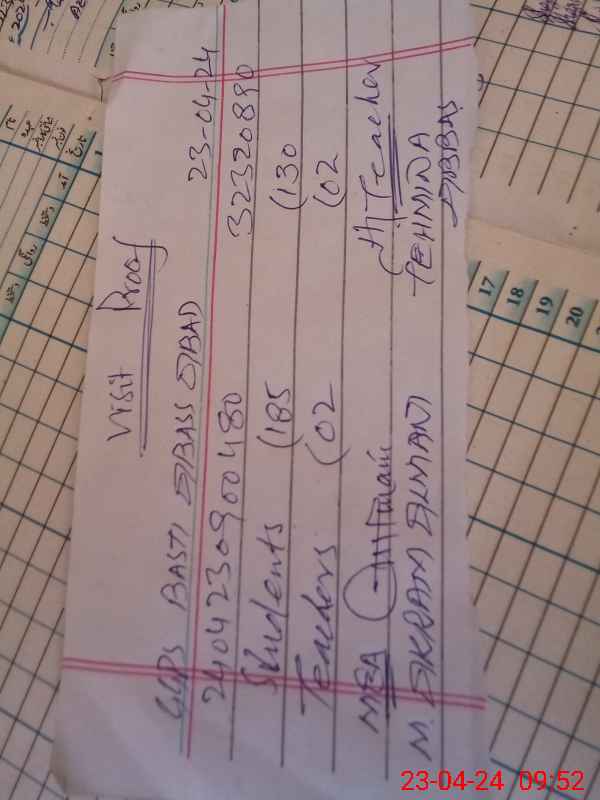 Visit Proof
GGPS BASTI ABBASS ABAD 23-04-24
2404230900480 32320890
Students (185 (130
Teachers (02 (02
MEA (H/Teacher
M. AKRAM ALMANI TEHMINA ABBAS
17
18
19
20
23-04-24 09:52